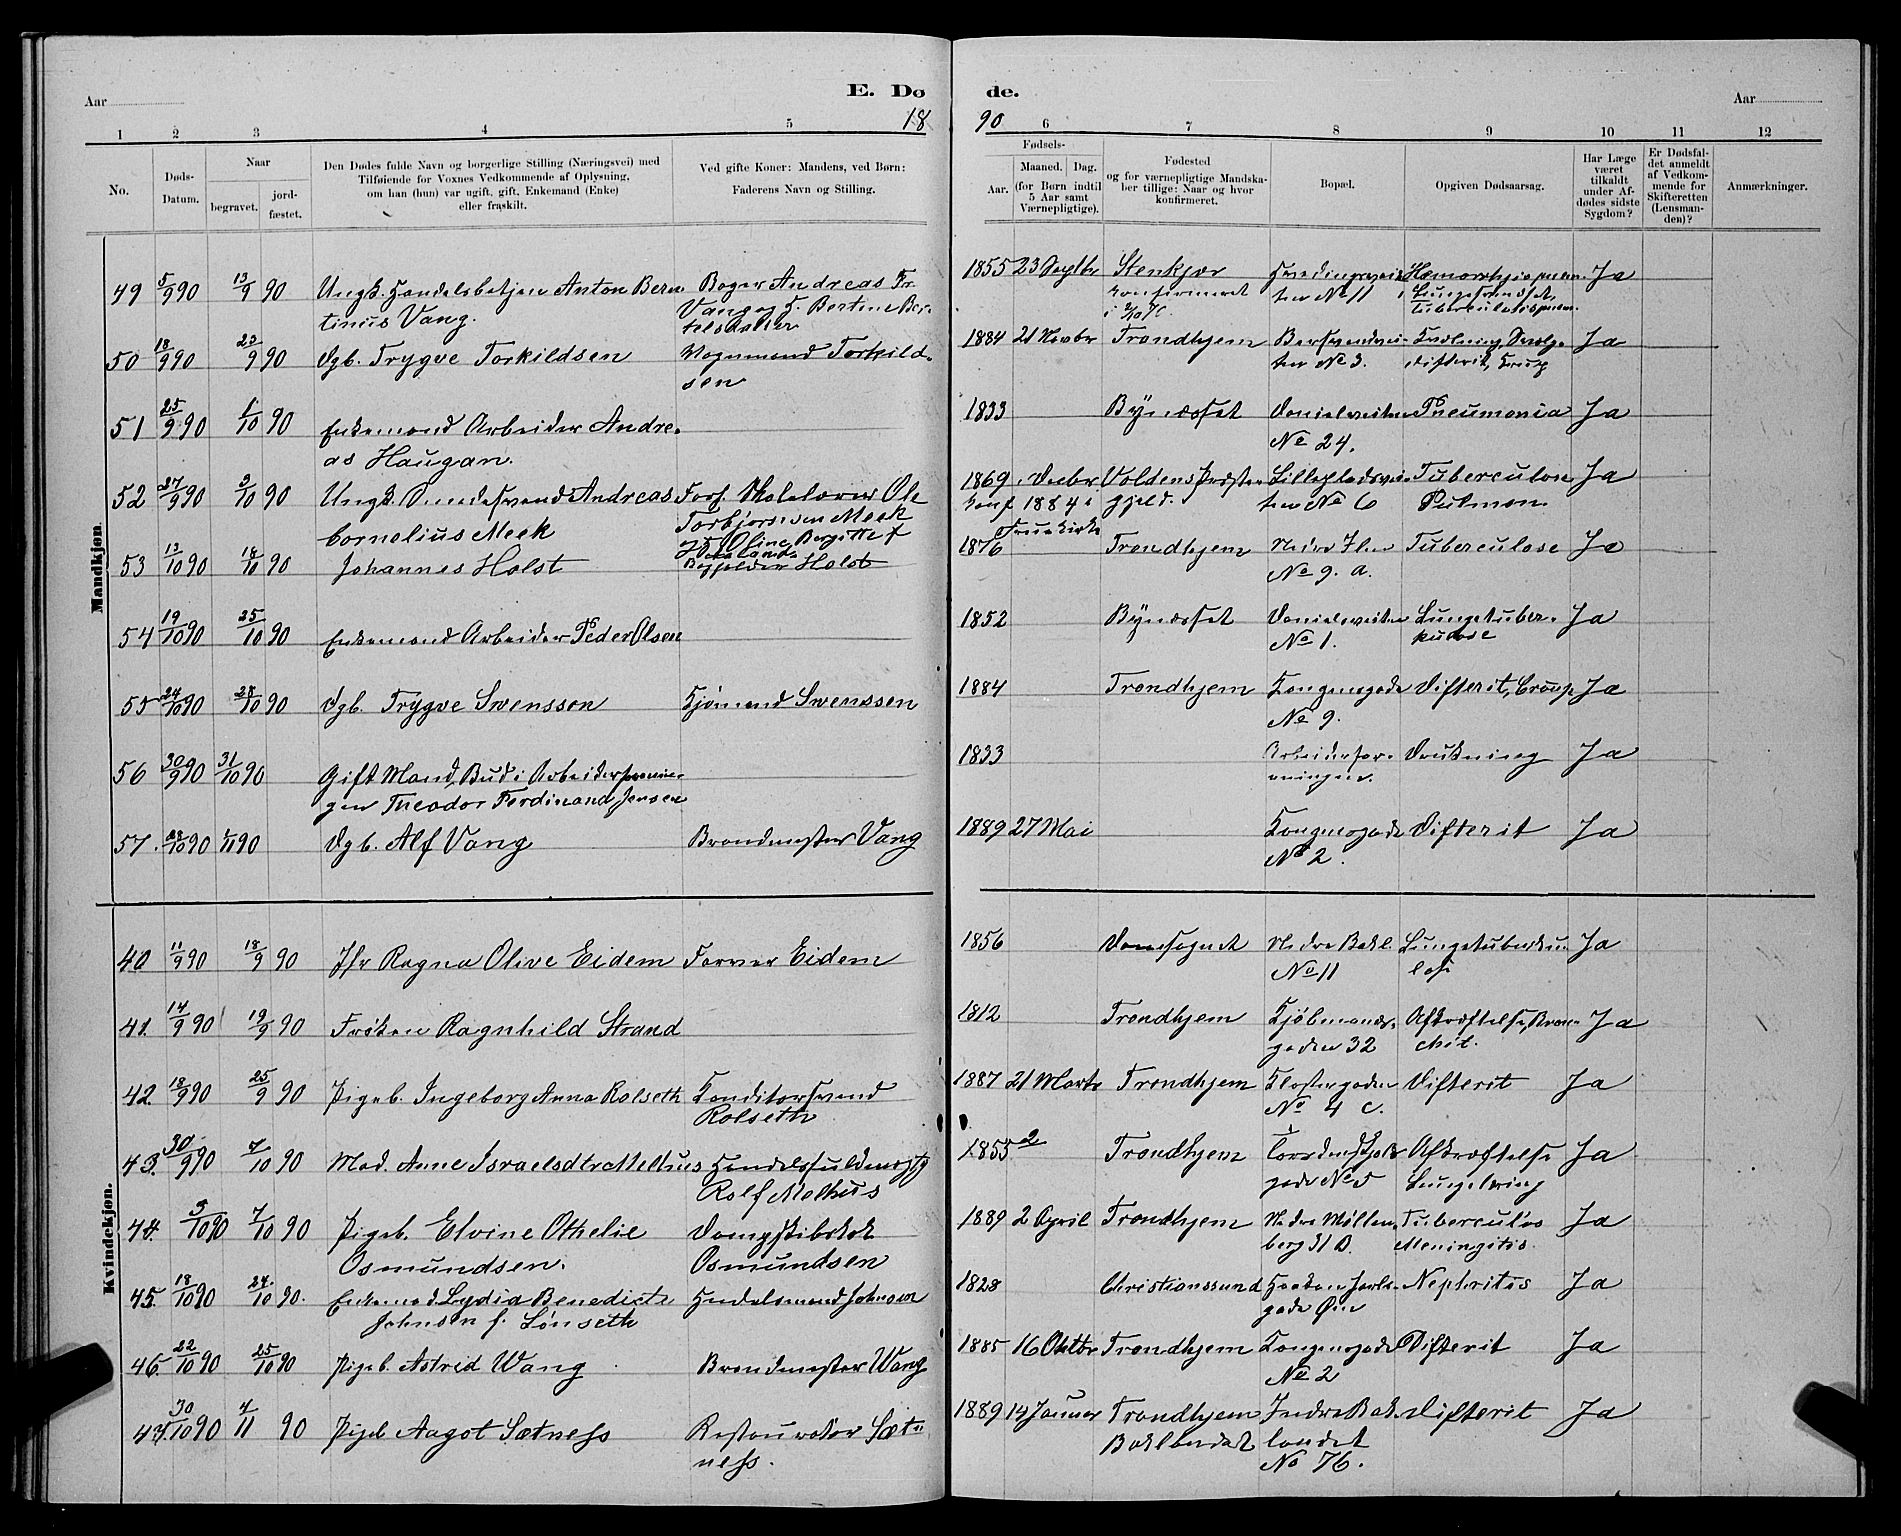 Aar
E. Dø
de.
Aar
18
90
1 2 3 4 5 6 7 8 9 10 11 12
No.
Døds-
Datum.
Naar
begravet.
jord-
fæstet.
Den Dødes fulde Navn og borgerlige Stilling (Næringsvei) med
Tilføiende for Voxnes Vedkommende af Oplysning,
om han (hun) var ugift, gift, Enkemand (Enke)
eller fraskilt.
Ved gifte Koner: Mandens, ved Børn:
Faderens Navn og Stilling.
Fødsels-
Aar.
Maaned. Dag.
(for Børn indtil
5 Aar samt
Værnepligtige).
Fødested
og for værnepligtige Mandska-
ber tillige: Naar og hvor
konfirmeret.
Bopæl.
Opgiven Dødsaarsag.
Har Læge
været
tilkaldt
under Af-
dødes sidste
Sygdom?
Er Dødsfal-
det anmeldt
af Vedkom-
mende for
Skifteretten
(Lensman-
den)?
Anmærkninger.
Mandkjøn.
49 5/9 90 13/9 90 Ungk. Handelsbetjen Anton Bern Bager Andreas Fr. 1855 23 Septbr Stenkjær No 11 Ja
tinius Vang. Vang og H. Bertine Ber-
telsdatter
konfirmeret
50 18/9 90 23/9 90 Dgb. Trygve Torkildsen Vognmand Torkild- 1884 21 Novbr Trondhjem No 3. Ja
sen
51 25/9 90 1/10 90 Enkemand Arbeider Andre- 1833 Bynæsset Danielsveiten Pneumonia Ja
as Haugan. No 24.
52 27/9 90 3/10 90 Ungk. Andreas Forh. Skolelærer Ole 1869 Decbr Voldens Præste- Tuberculose Ja
Cornelius Meek Torbjørnsen Meek konf 1884 i gjeld. No 6 Pulmon.
Frue Kirke
53 13/10 90 18/10 90 Johannes Holst Holst 1876 Trondhjem Nedre Ilen Tuberculose Ja
No 9. a.
54 19/10 90 25/10 90 Enkemand Arbeider Peder Olsen 1852 Bynæsset Danielsveiten Lungetuber- Ja
No 1. kulose
55 24/10 90 28/10 90 Dgb. Trygve Svensson Sjømand Svenssen 1884 Trondhjem Kongensgade Difterit, Croup Ja
No 9.
56 30/9 90 31/10 90 Gift Mand, Bud i Arbeiderforenin- 1833 Arbeiderfor- Drukning Ja
gen Theodor Ferdinand Jensen eningen.
57. 28/10 90 1/11 90 Dgb. Alf Vang Brandmester Vang 1889 27 Mai Kongensgade Difterit Ja
No 2.
Kvindekjøn.
40 11/9 90 18/9 90 Jfr Ragna Olive Eidem Farver Eidem 1856 Domsognet Nedre Bakl. Lungetuberku- Ja
No 11 lose
41. 14/9 90 19/9 90 Frøken Ragnhild Strand 1812 Trondhjem Kjøbmands- Afkræftelse, Bron- Ja
gaden 32 chit.
42. 18/9 90 25/9 90 Pigeb. Ingeborg Anna Rolseth Konditorsvend 1887 21 Marts Trondhjem Klostergaden Difterit Ja
Rolseth No 4 c.
43. 30/9 90 7/10 90 Mad. Anne Israelsdtr Melhus Handelsfuldmægtig 1855 2 Trondhjem Tordenskjolds Afkræftelse Ja
Rolf Melhus gade No 5
44. 5/10 90 7/10 90 Pigeb. Elvine Othelie Dampskibskok 1889 2 April Trondhjem Nedre Møllen- Tuberculøs Ja
Osmundsen. Osmundsen berg 31 D. Meningitis.
45. 18/10 90 24/10 90. Enkemad. Lydia Benedicte Handelsmand Johnsen 1828 Christianssund Haakon Jarls- Nephritis Ja
Johnsen f. Lønseth gade
46. 22/10 90 25/10 90 Pigeb. Astrid Wang Brandmester Wang 1885 16 Oktbr Trondhjem Kongensgade Difterit Ja
No 2
47. 30/10 90 4/11 90 Pigeb Aagot Sætness Restauratør Sæt- 1889 14 Januar Trondhjem Indre Bak- Difterit Ja
ness. Baklandet landet
No 76.